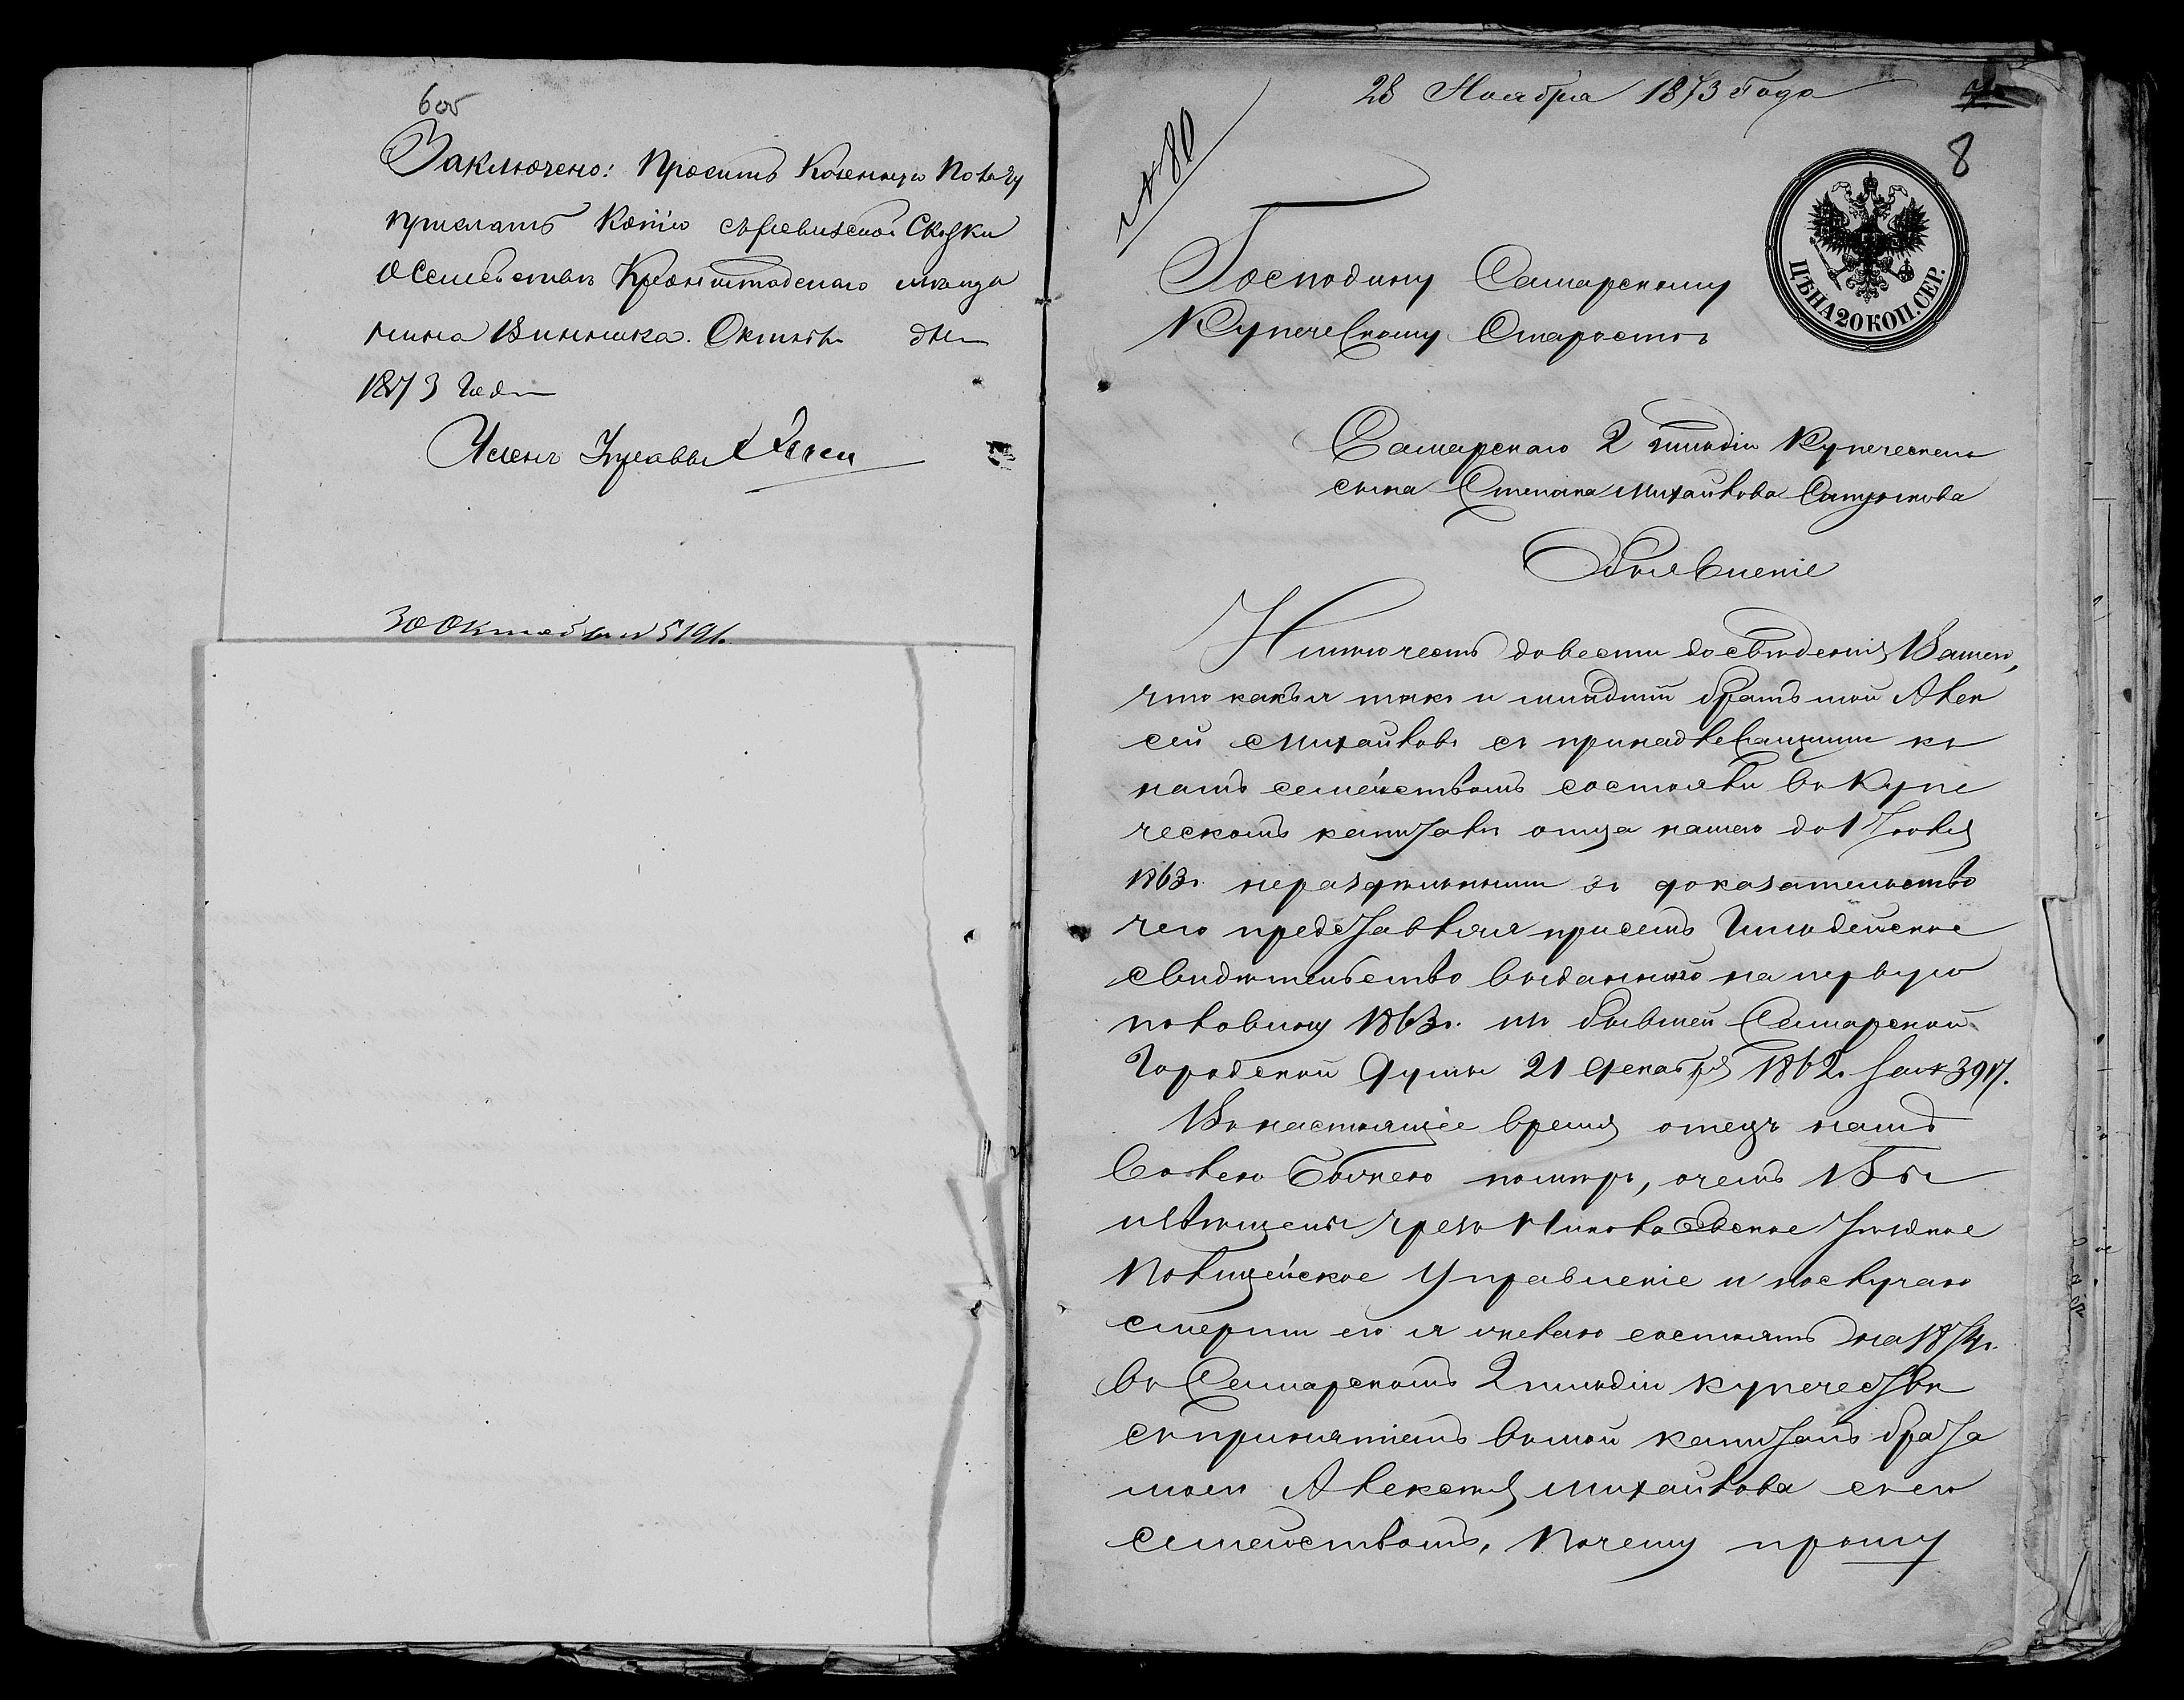 6об
Заключено: Просить Казенную Полату
прислать Копію съ ревизской Сказки
о Семействѣ Кронштадскаго мѣща
нина Винника. Октября дня
1873 года
Членъ Управы
30 Октября № 5191.
28 Ноября 1873 Года
8
№ 80
ЦѢНА 20 КОП. СЕР.
Господину Самарскому
Купеческому Старостѣ
Самарскаго 2 гильдіи Купеческаго
сына Степана Михайлова
Объявленіе
Имѣю честь довести до свѣденія Вашего,
что какъ я такъ и младшій братъ мой Алек
сей Михайловъ съ принадлежащими къ
намъ семействомъ состояли въ Купе
ческомъ капиталѣ отца нашего до 1 Іюля
1863г. нераздѣльными въ доказательство
чего представляя присемъ Гильдейское
свидѣтельство выданного на первую
половину 1863г. изъ бывшей Самарской
Городской Думы 21 Декабря 1862г. за № 3917.
В настоящее время отецъ нашъ
волею Божіею помѣръ, о чемъ Вы
извѣщены чрезъ Николаевское Уѣздное
Полицейское Управленіе и послучаю
смерти его я желаю состоять на 1874г.
въ Самарскомъ 2 гильдіи купечествѣ
съ принятіемъ въ мой капиталъ брата
моего Алексѣя Михайлова съ его
семействомъ, Почему прошу